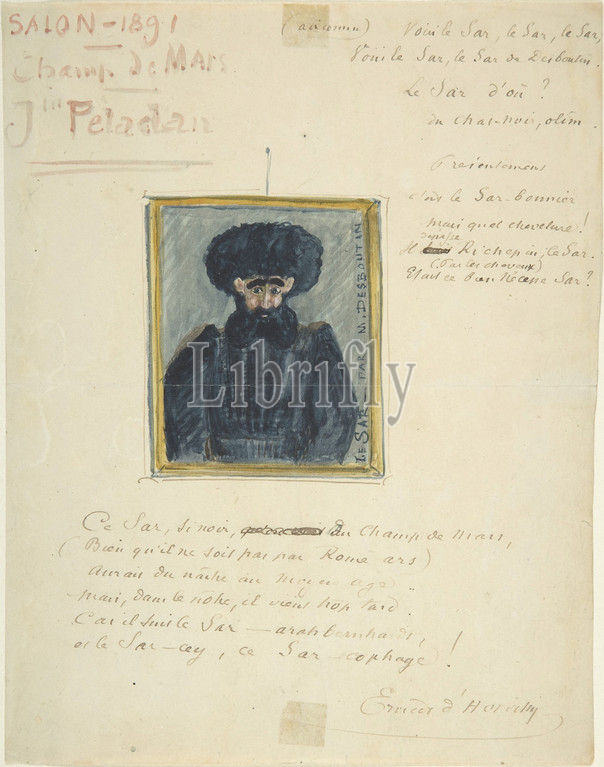 SALON - 1891
Champ de MARS
J^in Peladan
Voici le Sar, le Sar, le Sar,
Voici le Sar, le Sar de Desboutin.
Le Sar d'où ?
du Chat-noir, olim.
le Sar-bonnier
mais quel chevelure !
depasse
Il Richepin, le Sar.
(Par les cheveux)
Etait ce bien Sar ?
LE SAR PAR M. DESBOUTIN
Librifly
Ce Sar, si noir, du Champ de Mars,
(Bien qu'il ne soit pas par Rome ars)
Aurait du naître au moyen age.
mais, dans le nôtre, il vient trop tard.
Car il suit le Sar - arahbernhardt,
et le Sar-cey, ce Sar cophage !
Ernest d'Hervilly